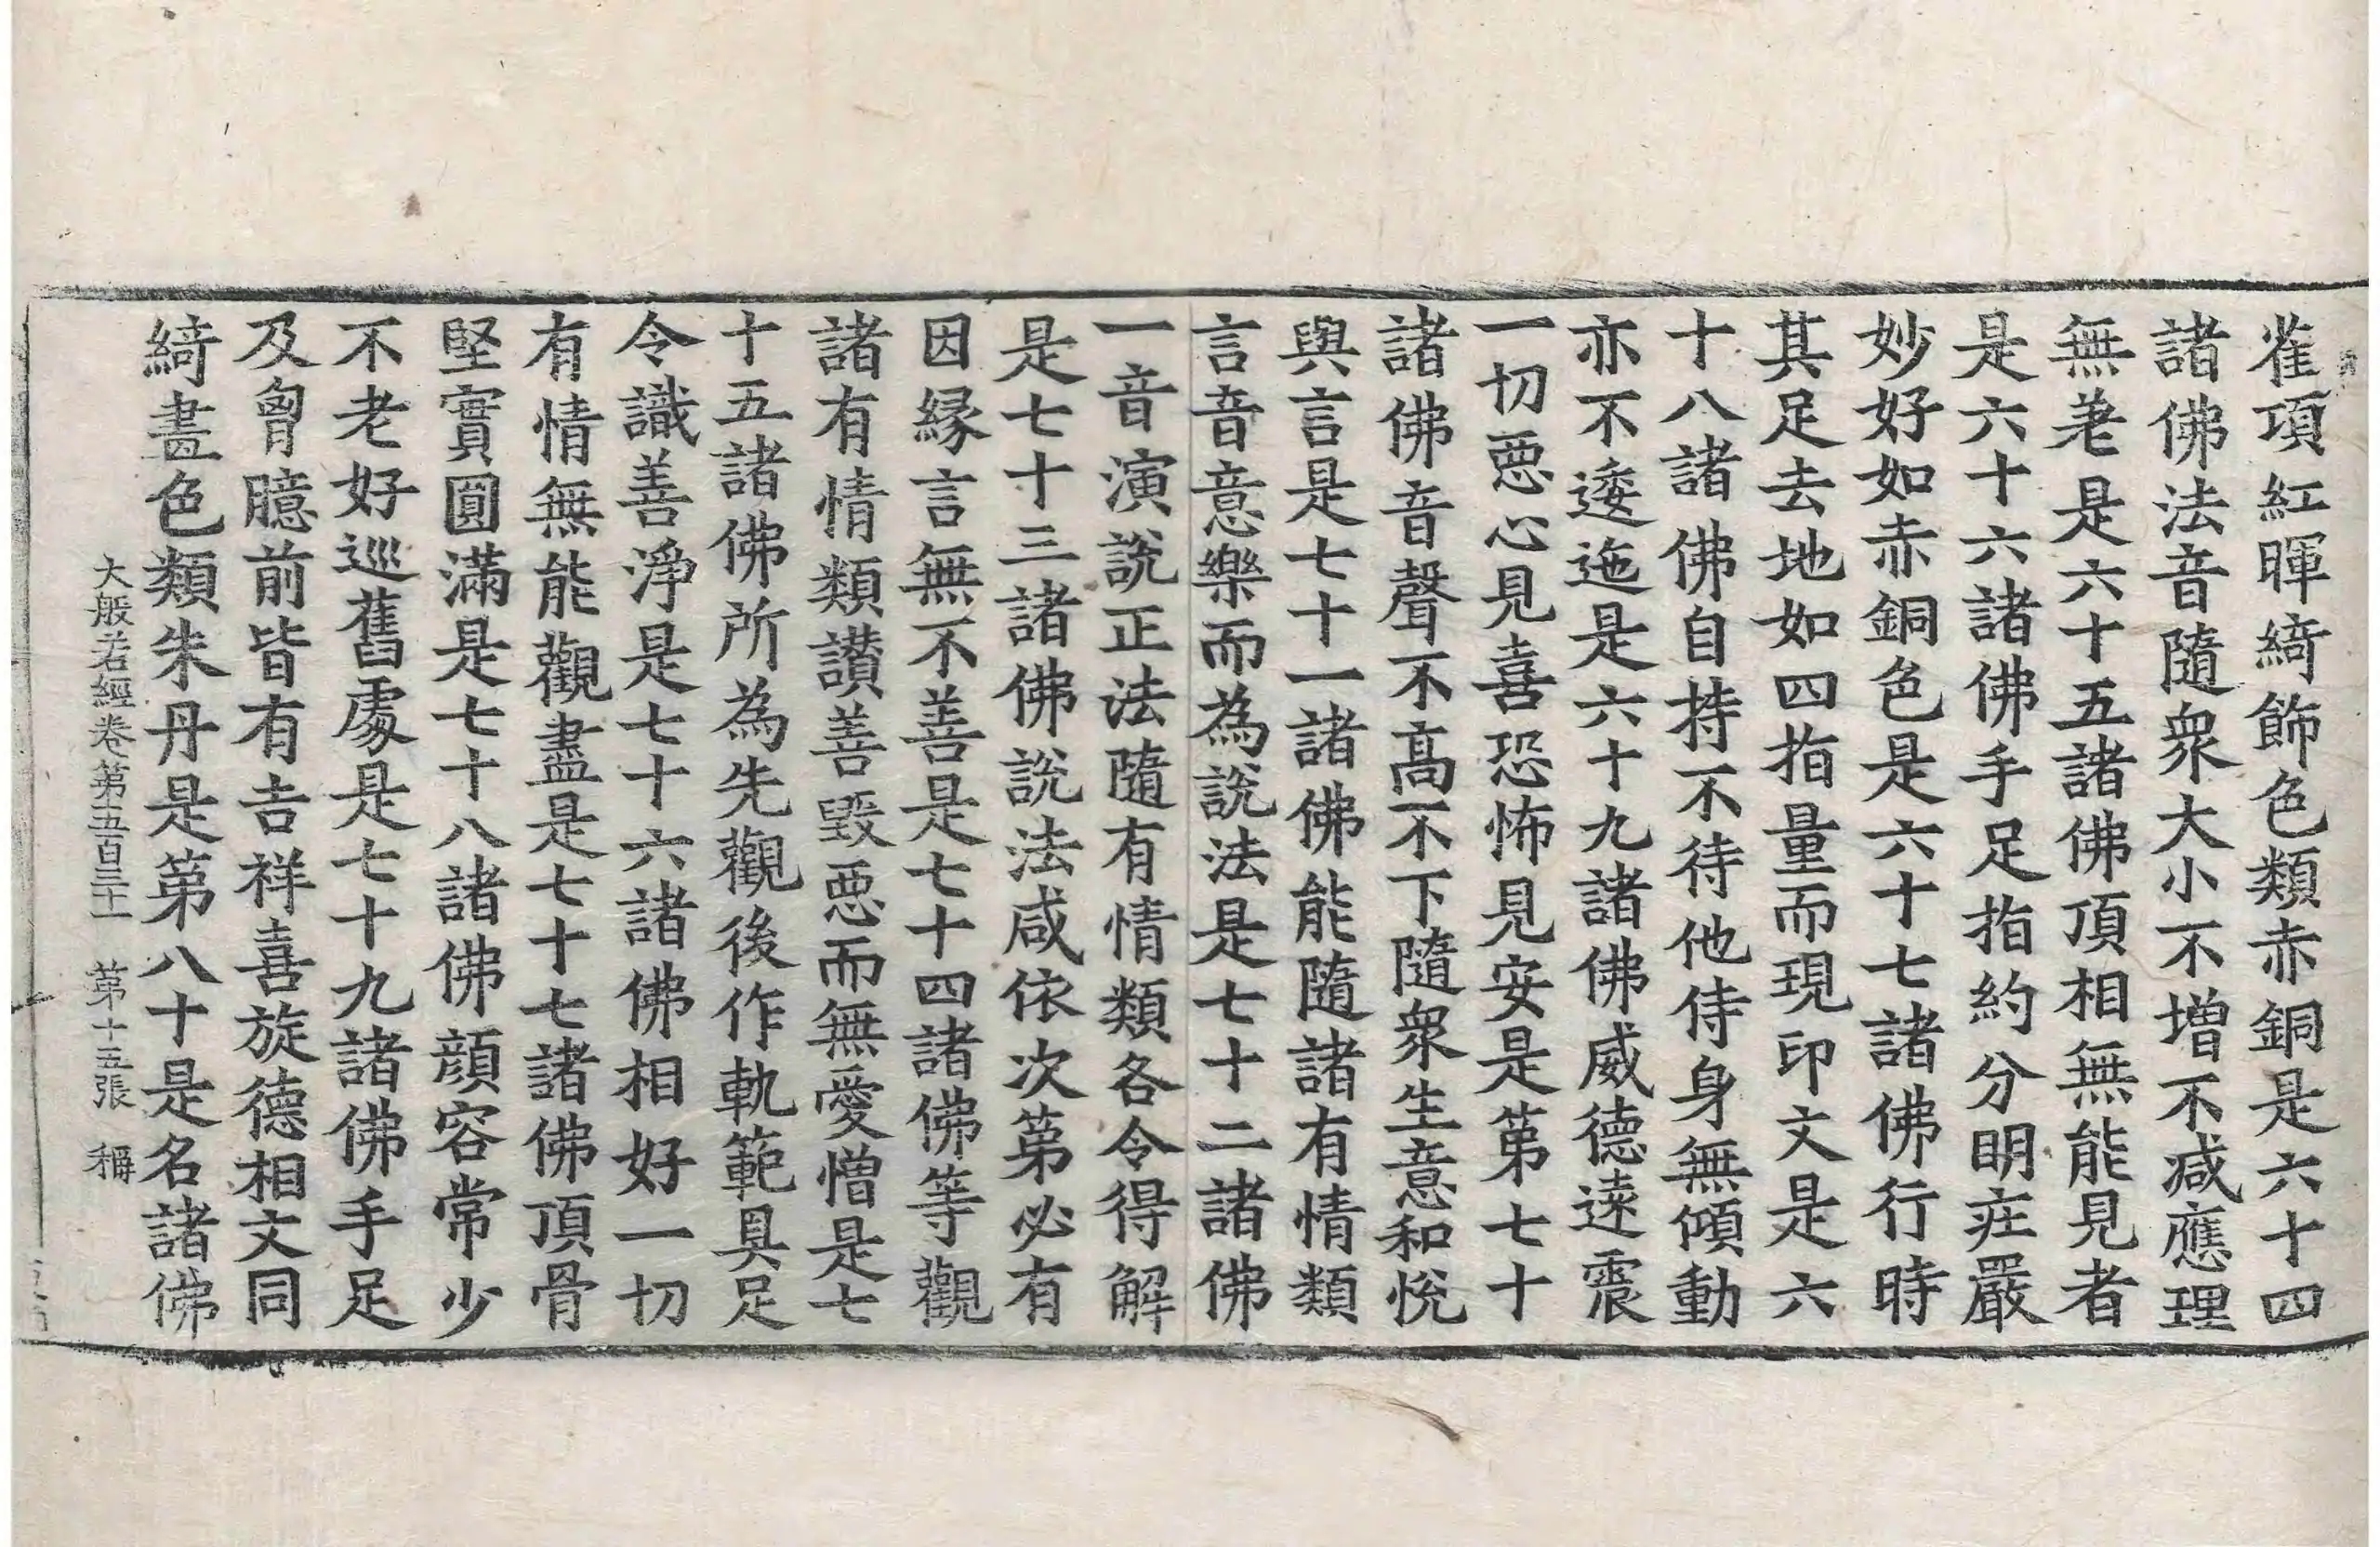 雀項紅暉綺飾色類赤銅是六十四
諸佛法音隨衆大小不增不減應理
無差是六十五諸佛頂相無能見者
是六十六諸佛手足指約分明疘嚴
妙好如赤銅色是六十七諸佛行時
其足去地如四指量而現印文是六
十八諸佛自持不待他侍身無傾動
亦不逶迤是六十九諸佛威德遠震
一切惡心見喜恐怖見安是第七十
諸佛音聲不高不下隨衆生意和悅
與言是七十一諸佛能隨諸有情類
言音意樂而為說法是七十二諸佛
一音演說正法隨有情類各令得解
是七十三諸佛說法咸依次第必有
因緣言無不善是七十四諸佛等觀
諸有情類讚善毀惡而無愛憎是七
十五諸佛所為先觀後作軌範具足
令識善淨是七十六諸佛相好一切
有情無能觀盡是七十七諸佛頂骨
堅實圓滿是七十八諸佛顏容常少
不老好巡舊處是七十九諸佛手足
及胷臆前皆有吉祥喜旋德相文同
綺畫色類朱丹是第八十是名諸佛
大般若經卷第五百三十一 第十五張 稱